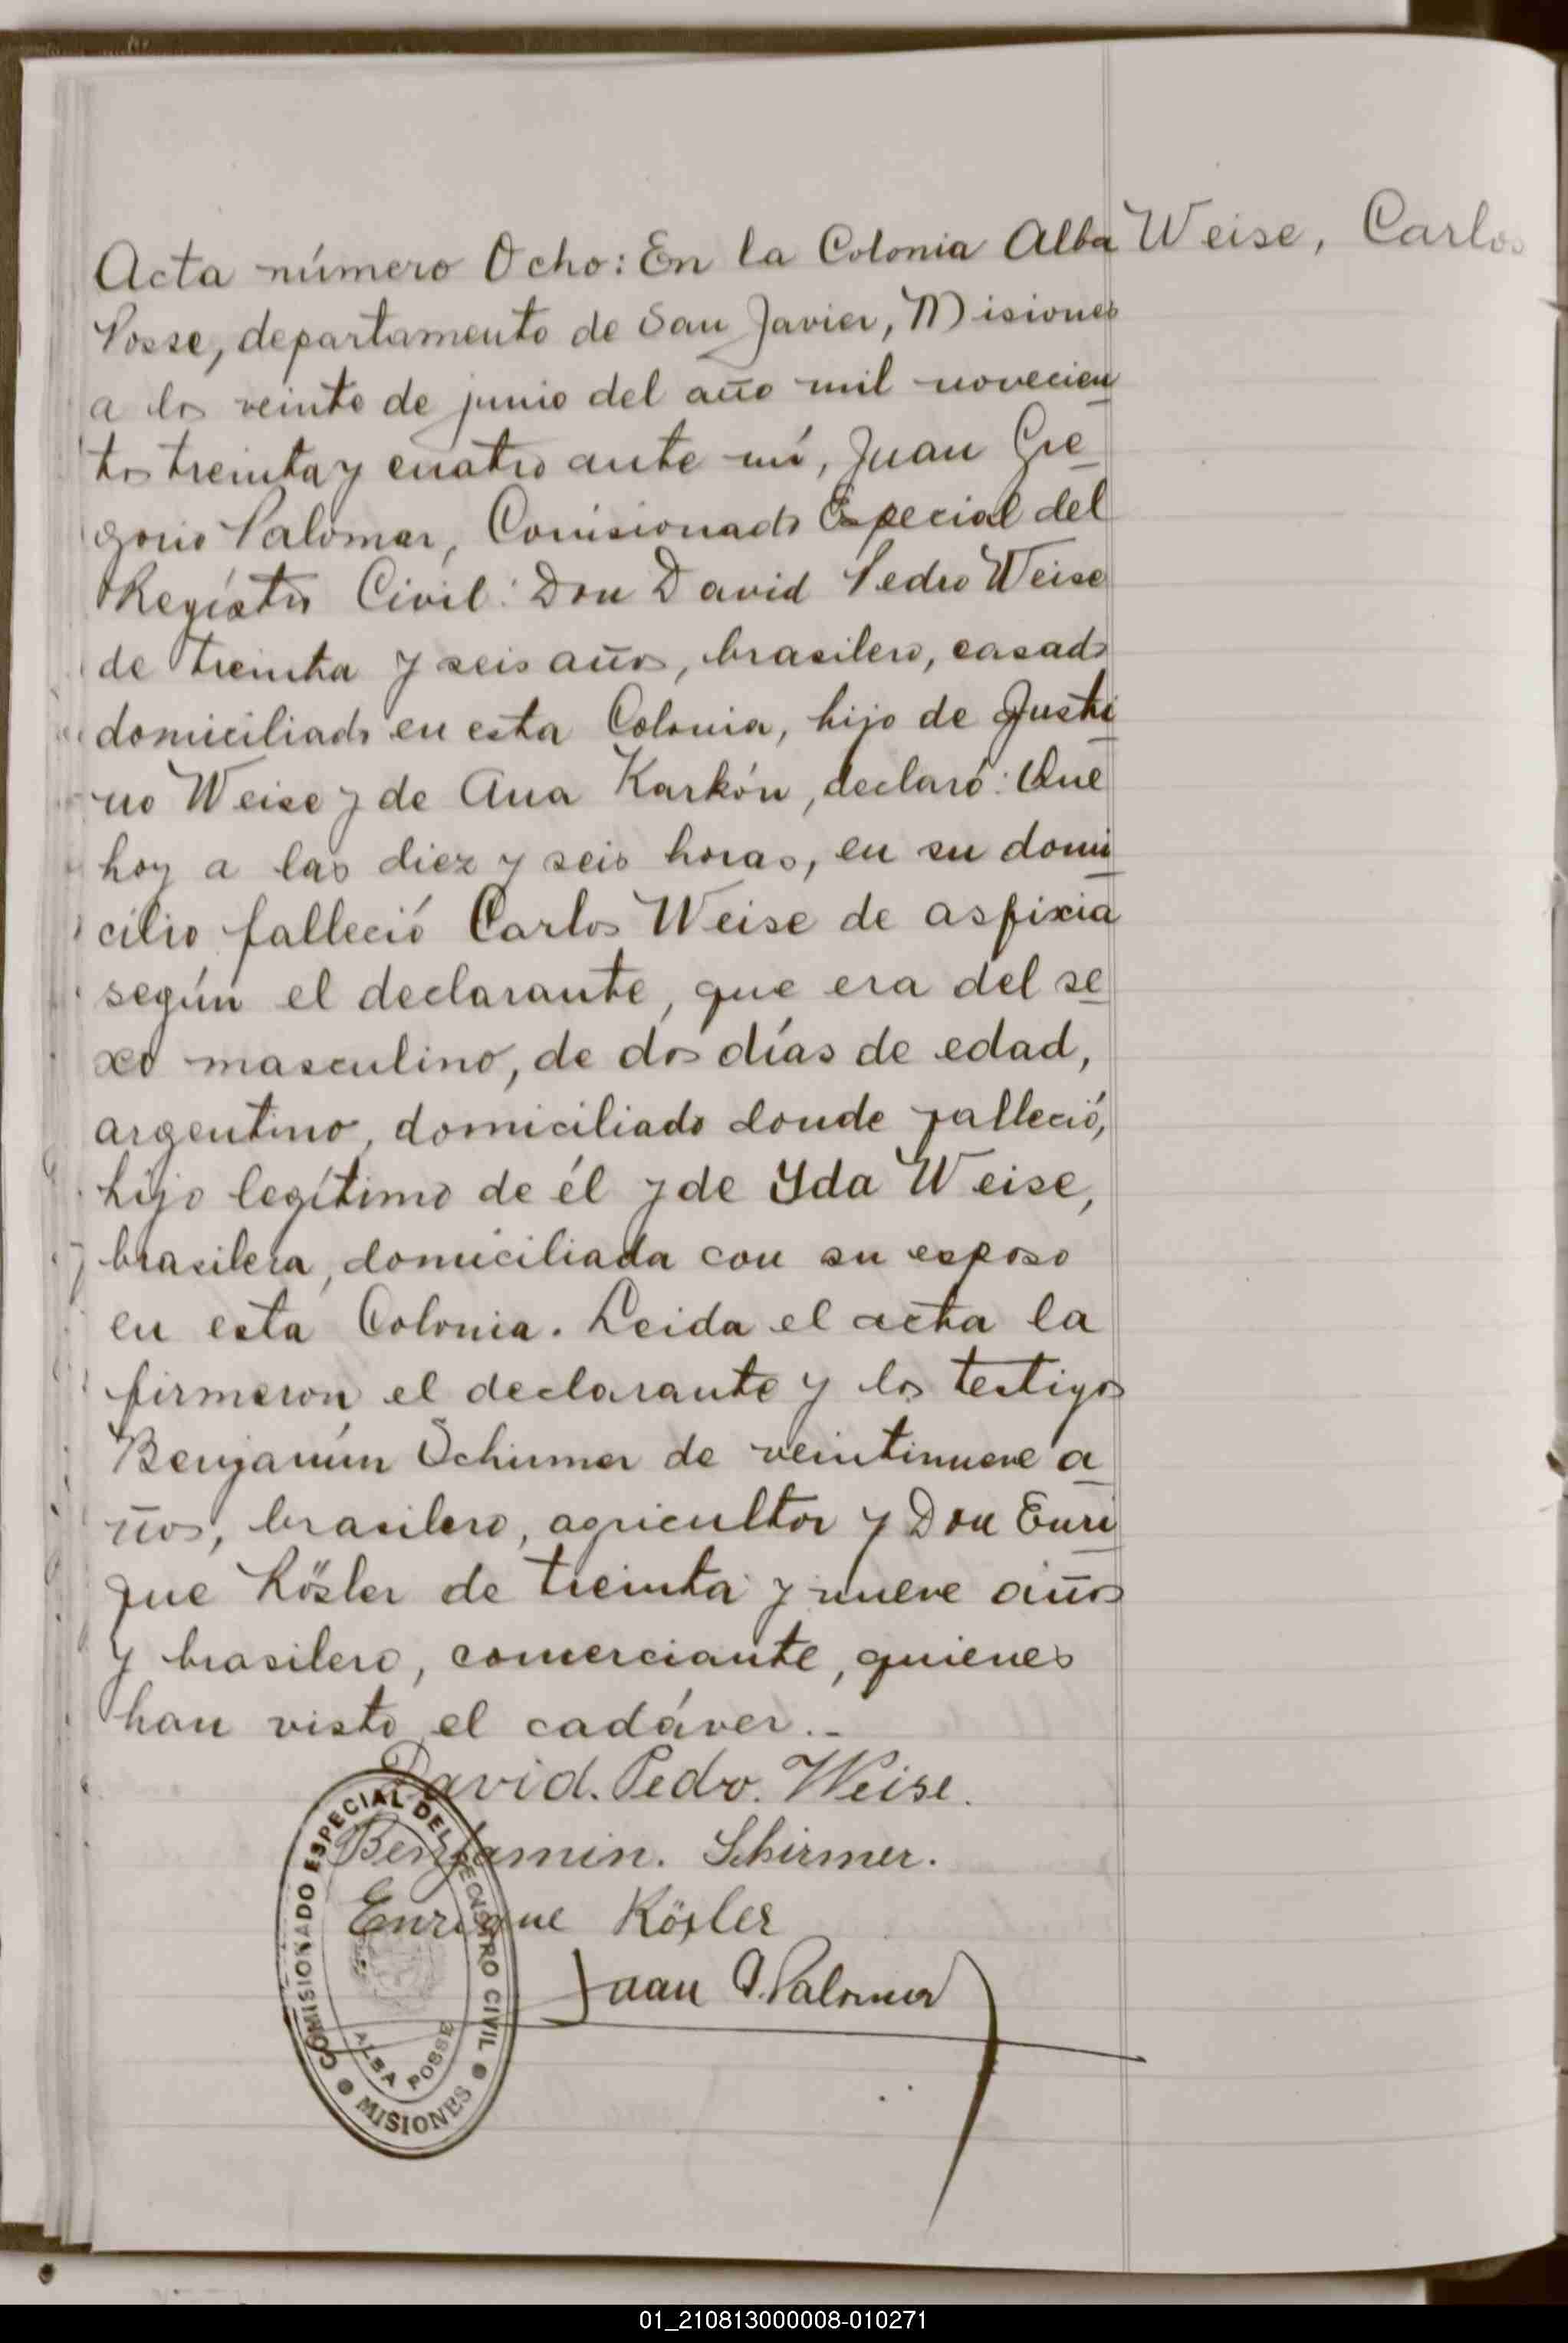 Acta número Ocho: En la Colonia Alba
Weise, Carlos
Posse, departamento de San Javier, Misiones
a los veinte de junio del año mil novecien
tos treinta y cuatro ante mí, Juan Gre
gorio Palomar, Comisionado Especial del
Registro Civil: Don David Pedro Weise
de treinta y seis años, brasilero, casado
domiciliado en esta Colonia, hijo de Justi
no Weise y de Ana Karkón, declaró: Que
hoy a las diez y seis horas, en su domi
cilio falleció Carlos Weise de asfixia
según el declarante, que era del se
xo masculino, de dos días de edad,
argentino, domiciliado donde falleció,
hijo legítimo de él y de Yda Weise,
brasilera, domiciliada con su esposo
en esta Colonia. Leida el acta la
firmaron el declarante y los testigos
Benjamín Schirmer de veintinueve a
ños, brasilero, agricultor y Don Enri
que Kösler de treinta y nueve años
y brasilero, comerciante, quienes
han visto el cadáver.-
David. Pedro. Weise.
Benjamin. Schirmer.
Enrique Kösler
Juan G. Palomar
COMISIONADO ESPECIAL DEL REGISTRO CIVIL
ALBA POSSE
MISIONES
01_210813000008-010271